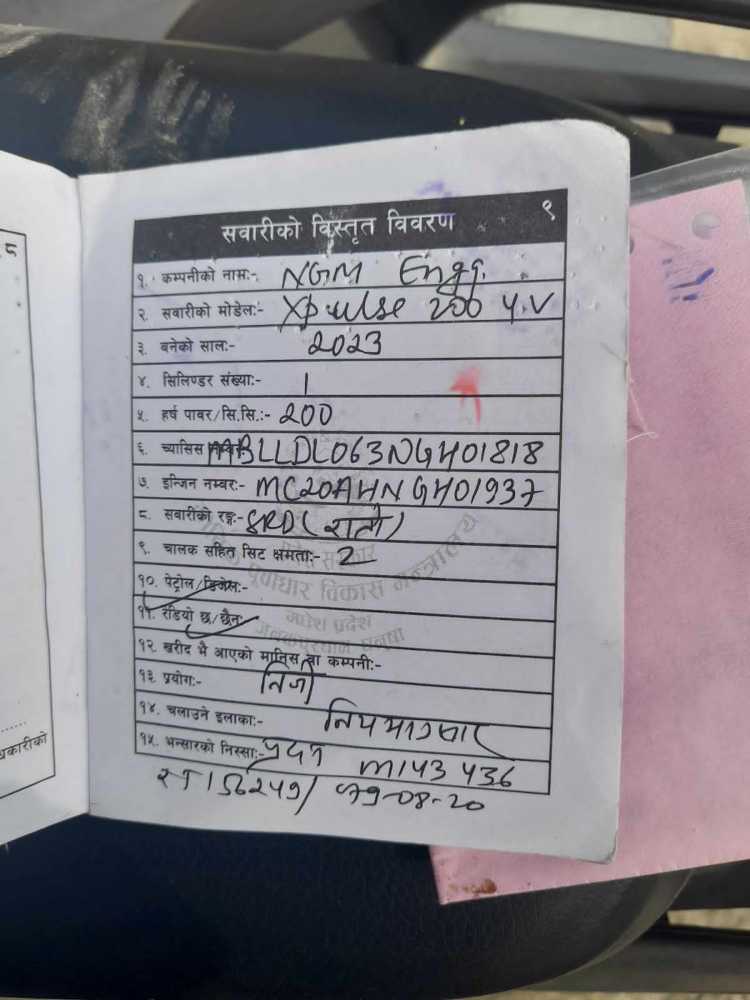 ८
९
सवारीको विस्तृत विवरण
१. कम्पनीको नामः- NGM Engg.
२. सवारीको मोडेलः- Xpulse 200 4.V
३. बनेको सालः- 2023
४. सिलिण्डर संख्याः- 1
५. हर्ष पावर/सि.सि.ः- 200
६. च्यासिस MBLLDL063NGH01818
७. इन्जिन नम्वरः- MC20AHNGH01937
८. सवारीको रङ्गः- SRD (रातो)
९. चालक सहित सिट क्षमताः- 2
१०. पेट्रोल/डिजेलः-
११. रेडियो छ/छैन
१२. खरीद भै आएको मानिस वा कम्पनीः-
१३. प्रयोगः- निजी
१४. चलाउने इलाकाः- नियमानुसार
१५. भन्सारको निस्साः- M143 436
156249/ 79-08-20
पूर्वाधार विकास मन्त्रालय
मधेश प्रदेश
जनकपुरधाम धनुषा